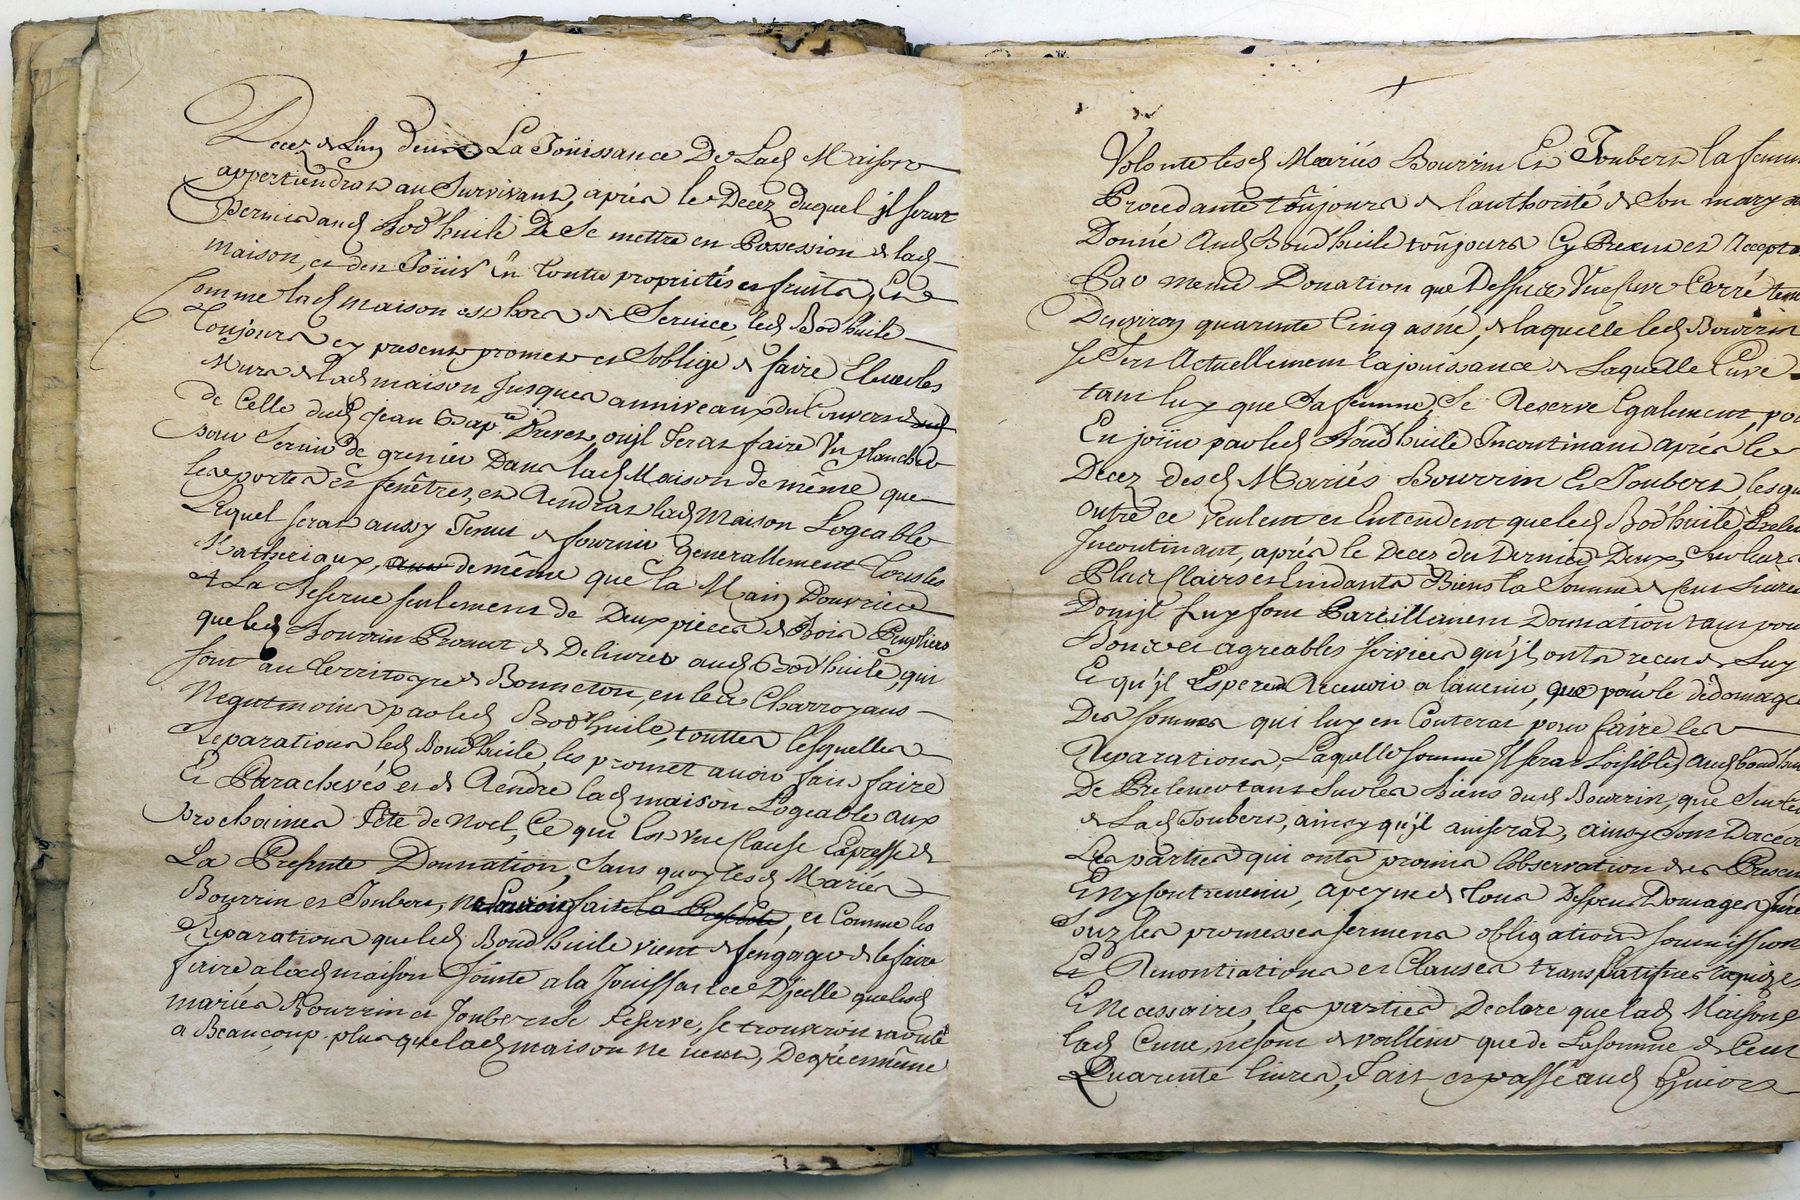 Decez de Lun deux La Joüissance De Lad Maison
appertiendrat au Survivant, aprés le Decez duquel jl serat
Permis aud Bod'huile De Se mettre en Possession de lad
maison, et den Joüir En toutte proprietés et fruits, Et
Comme lad maison est hors de Service, led Bod'huile
Toujours cy present promet et Soblige de faire Elever les
Murs de lad maison Jusques au niveaux du Couvert
de Celle dud Jean Bap.te Drevet, ou jl ferat faire Un plancher
pour Servir de grenier Dans lad Maison de même que
les portes et fenêtres, et Rendrat lad Maison Logeable
Lequel serat aussy Tenut de fournir generallement Tous les
Matheriaux, de même que la Main Douvriere
A La Reserve seulement de Deux pieces de Bois Peupliers
que led Bourrin Promet de Delivrer aud Bod'huile, qui
sont au Territoyre de Bonneton, en les Charroyant
Negutmoins par led Bod'huile, touttes lesquelles
Reparations led Boud'huile, les promet avoir fait faire
Et Parachevés et de Rendre lad maison Logeable aux
prochaines fête de Noel, Ce qui Est une Clause Expresse de
La Presente Donnation, Sans quoy lesd Mariés
Bourrin et Joubert, ne Lauroit faite la Presente, et Comme les
Reparations que led Boud'huile vient de sengager de le faire
faire a lad maison Jointe a la Jouissance Djcelle que lesd
mariés Bourrin et Joubert se reserve, se trouveroit
a Beaucoup plus que lad maison ne vaut, De gré en même
Volonte lesd Mariés Bourrin Et Joubert la femme
Procedante toûjours de lauthorité de Son mary
Donné Aud Boud'huile toûjours Cy Present et Accepta
Par meme Donation que Dessus Une Cuve Carré
Denviron quarente Cinq asné, de laquelle led Bourrin
Actuellement la joüissance de Laquelle Cuve
tant luy que Sa femme, Se Reserve Egalement, pour
En joüir par led Boud'huile Incontinant aprés le
Decez desd Mariés Bourrin Et Joubert, lesqu
outre ce veulent et Entendent que led Bod'huile
Incontinant, aprés le Decez du Dernier Deux, Sur leurs
Plus Clairs et Biens la Somme de
Dont jl luy font Pareillement Donnation tant pour
Bons et agreables services qu'jl onts reçeu de Luy
Et qu'jl Esperent Recevoir a lavenir, que pour le dédomage
Des sommes qui luy en Couterat pour faire les
Reparations, Laquelle somme Jl serat Loisible, Aud boud'hu
De Prelever tant Sur les biens dud Bourrin, que Sur les
de Lad Joubert, ainsy qu'jl aviserat, ainsy Sont Daccor
Les parties qui onts promis lobservation des Presen
Et ny contrevenir, a peyne de tous Depens Domages
Souz les promesses sermens obligations soumission
Et Renontiations et Clauses
Et Necessaires, les parties Declare que lad Maison
lad Cuve, ne sont de valleur que de La somme de Cent
Quarente livres, Fait et passé aud